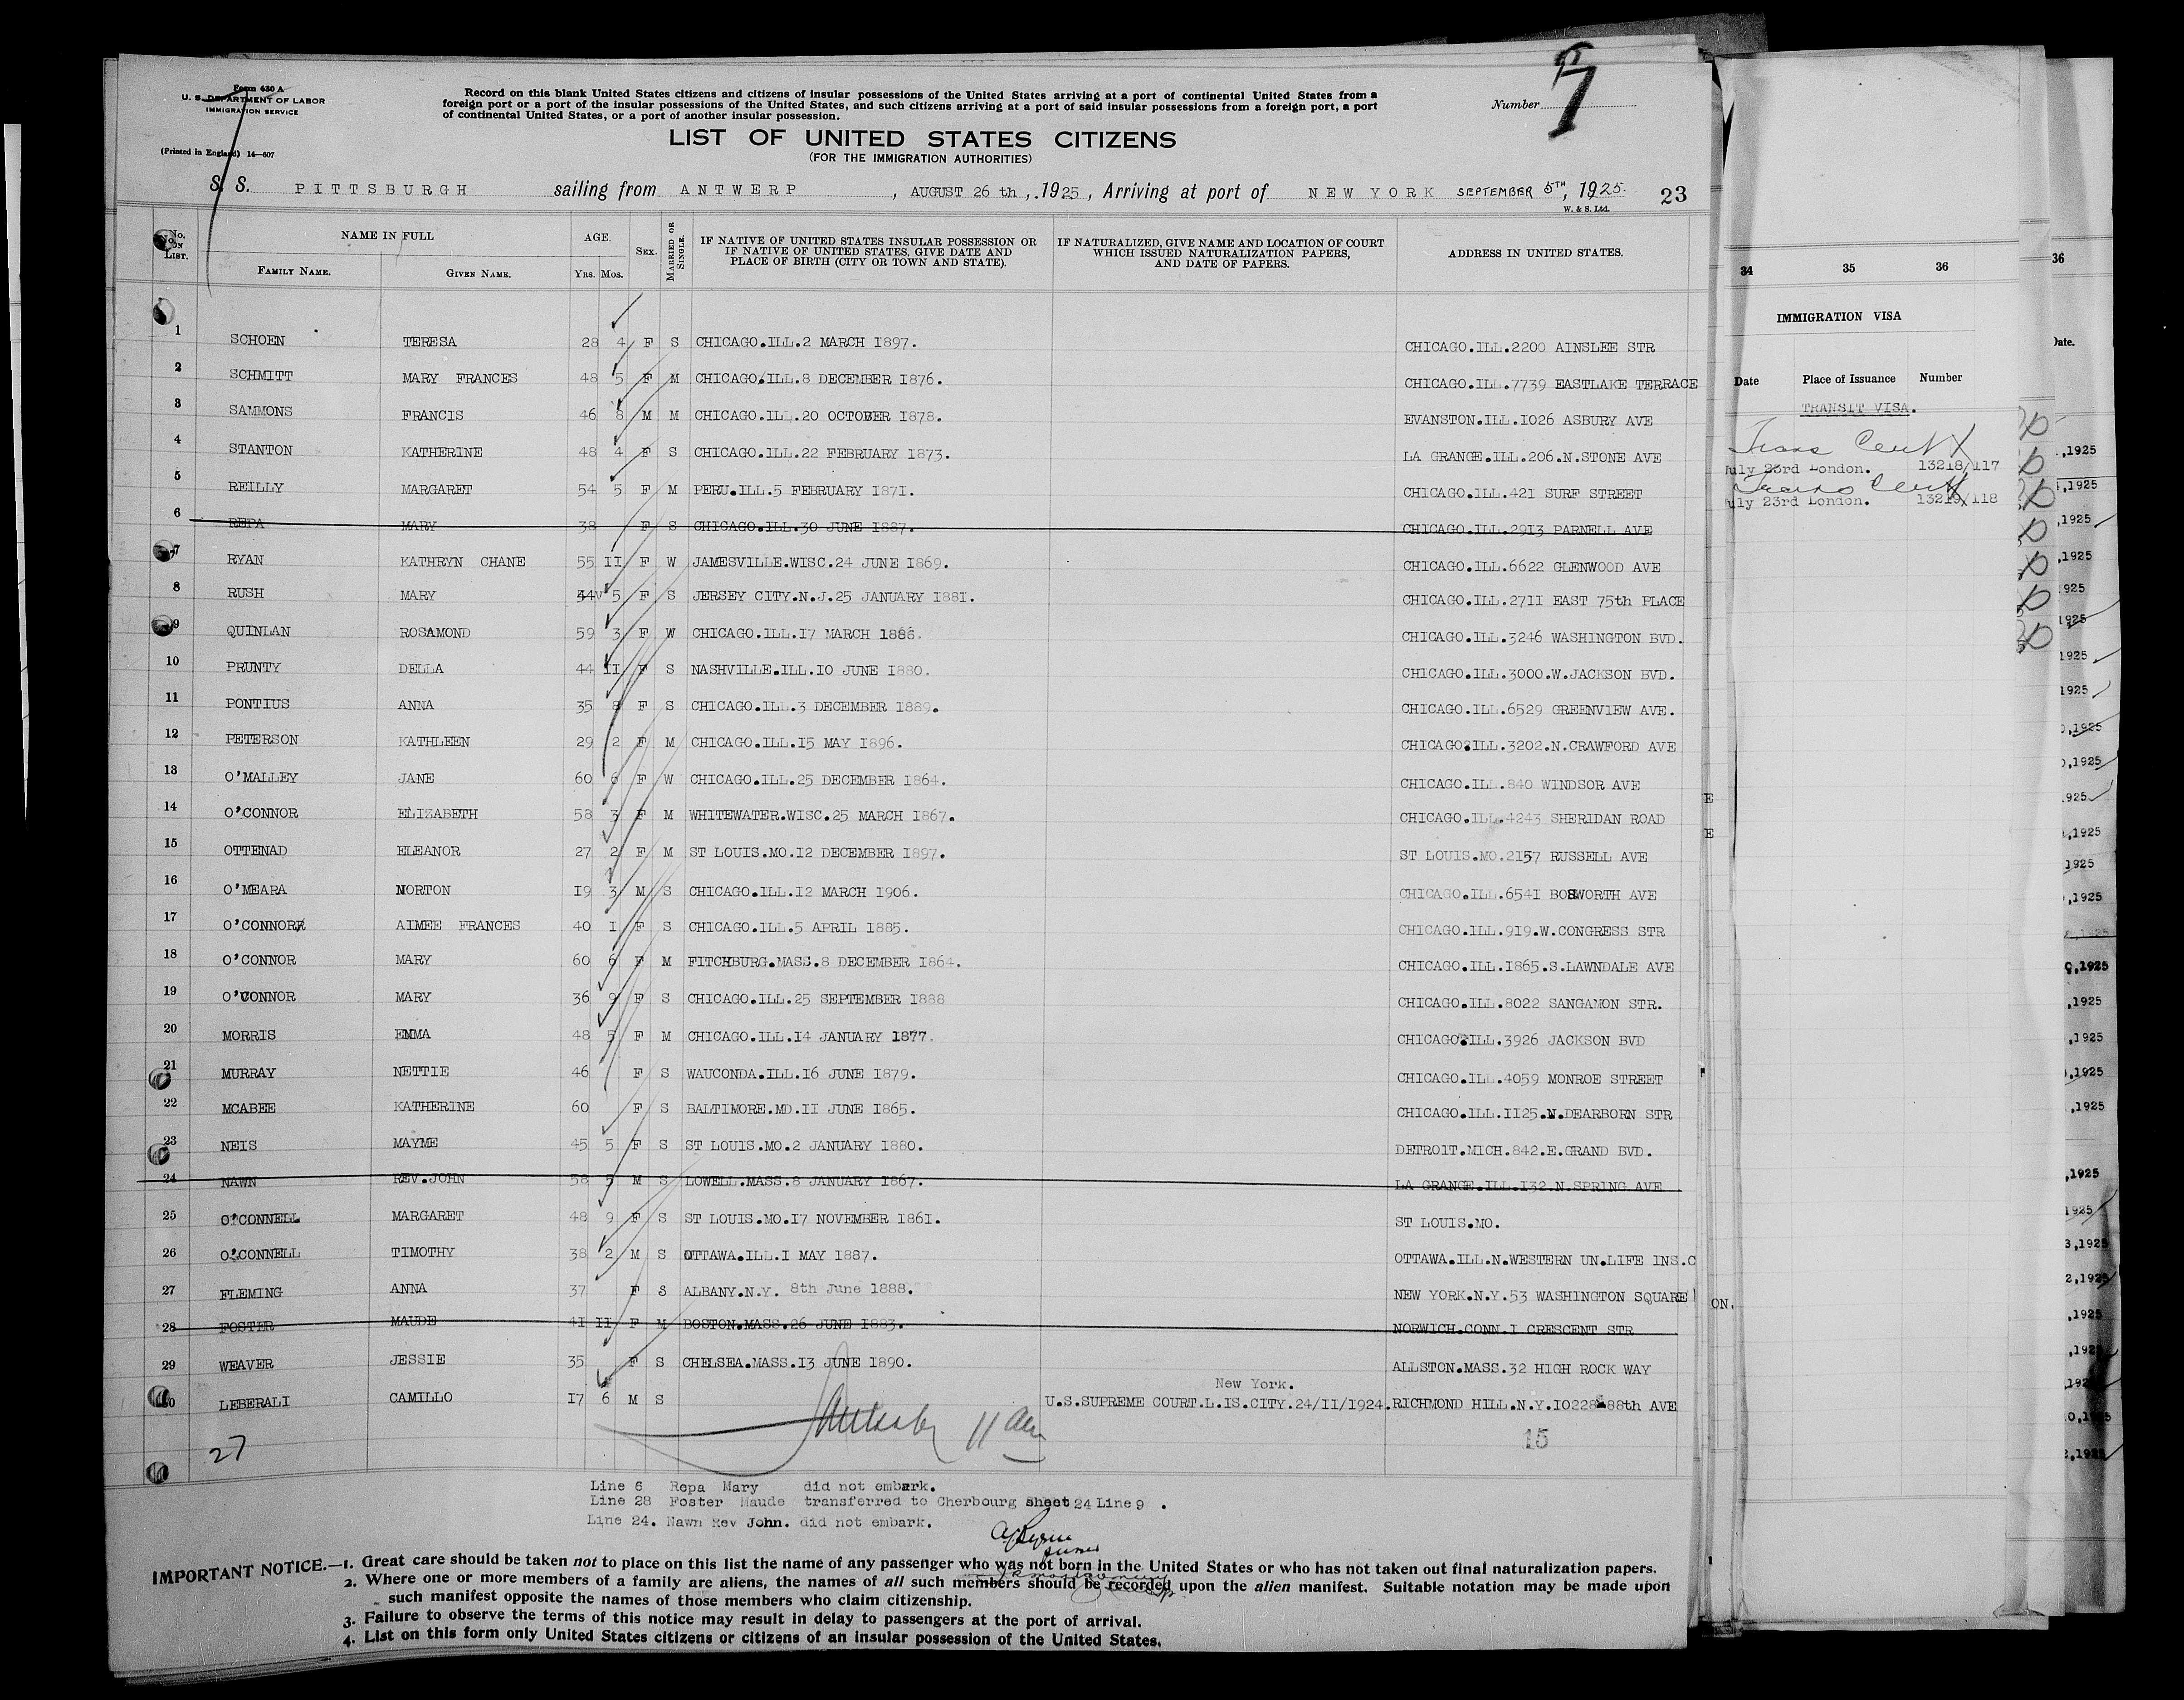 Form 630 A
U. S. DEPARTMENT OF LABOR
IMMIGRATION SERVICE
(Printed in England) 14—607
Record on this blank United States citizens and citizens of insular possessions of the United States arriving at a port of continental United States from a
foreign port or a port of the insular possessions of the United States, and such citizens arriving at a port of said insular possessions from a foreign port, a port
of continental United States, or a port of another insular possession.
Number 7
LIST OF UNITED STATES CITIZENS
(FOR THE IMMIGRATION AUTHORITIES)
S. S. PITTSBURGH sailing from ANTWERP, AUGUST 26 th, 1925, Arriving at port of NEW YORK SEPTEMBER 5TH, 1925. 23
W. & S. Ltd.
No. ON LIST. NAME IN FULL AGE. SEX. MARRIED OR SINGLE. IF NATIVE OF UNITED STATES INSULAR POSSESSION OR IF NATIVE OF UNITED STATES, GIVE DATE AND PLACE OF BIRTH (CITY OR TOWN AND STATE). IF NATURALIZED, GIVE NAME AND LOCATION OF COURT WHICH ISSUED NATURALIZATION PAPERS, AND DATE OF PAPERS. ADDRESS IN UNITED STATES.
FAMILY NAME. GIVEN NAME. YRS. MOS.
1 SCHOEN TERESA 28 4 F S CHICAGO.ILL.2 MARCH 1897. CHICAGO.ILL.2200 AINSLEE STR
2 SCHMITT MARY FRANCES 48 5 F M CHICAGO.ILL.8 DECEMBER 1876. CHICAGO.ILL.7739 EASTLAKE TERRACE
3 SAMMONS FRANCIS 46 8 M M CHICAGO.ILL.20 OCTOBER 1878. EVANSTON.ILL.1026 ASBURY AVE
4 STANTON KATHERINE 48 4 F S CHICAGO.ILL.22 FEBRUARY 1873. LA GRANGE.ILL.206.N.STONE AVE
5 REILLY MARGARET 54 5 F M PERU.ILL.5 FEBRUARY 1871. CHICAGO.ILL.421 SURF STREET
6 REPA MARY 38 F S CHICAGO.ILL.30 JUNE 1887. CHICAGO.ILL.2913 PARNELL AVE
7 RYAN KATHRYN CHANE 55 11 F W JAMESVILLE.WISC.24 JUNE 1869. CHICAGO.ILL.6622 GLENWOOD AVE
8 RUSH MARY 44 5 F S JERSEY CITY.N.J.25 JANUARY 1881. CHICAGO.ILL.2711 EAST 75th PLACE
9 QUINLAN ROSAMOND 59 3 F W CHICAGO.ILL.17 MARCH 1886. CHICAGO.ILL.3246 WASHINGTON BVD.
10 PRUNTY DELLA 44 11 F S NASHVILLE.ILL.10 JUNE 1880. CHICAGO.ILL.3000.W.JACKSON BVD.
11 PONTIUS ANNA 35 8 F S CHICAGO.ILL.3 DECEMBER 1889. CHICAGO.ILL.6529 GREENVIEW AVE.
12 PETERSON KATHLEEN 29 2 F M CHICAGO.ILL.15 MAY 1896. CHICAGO.ILL.3202.N.CRAWFORD AVE
13 O'MALLEY JANE 60 6 F W CHICAGO.ILL.25 DECEMBER 1864. CHICAGO.ILL.840 WINDSOR AVE
14 O'CONNOR ELIZABETH 58 3 F M WHITEWATER.WISC.25 MARCH 1867. CHICAGO.ILL.4243 SHERIDAN ROAD
15 OTTENAD ELEANOR 27 2 F M ST LOUIS.MO.12 DECEMBER 1897. ST LOUIS.MO.2157 RUSSELL AVE
16 O'MEARA NORTON 19 3 M S CHICAGO.ILL.12 MARCH 1906. CHICAGO.ILL.6541 BOSWORTH AVE
17 O'CONNOR AIMEE FRANCES 40 1 F S CHICAGO.ILL.5 APRIL 1885. CHICAGO.ILL.919.W.CONGRESS STR
18 O'CONNOR MARY 60 6 F M FITCHBURG.MASS.8 DECEMBER 1864. CHICAGO.ILL.1865.S.LAWNDALE AVE
19 O'CONNOR MARY 36 9 F S CHICAGO.ILL.25 SEPTEMBER 1888 CHICAGO.ILL.8022 SANGAMON STR.
20 MORRIS EMMA 48 5 F M CHICAGO.ILL.14 JANUARY 1877. CHICAGO.ILL.3926 JACKSON BVD
21 MURRAY NETTIE 46 F S WAUCONDA.ILL.16 JUNE 1879. CHICAGO.ILL.4059 MONROE STREET
22 MCABEE KATHERINE 60 F S BALTIMORE.MD.11 JUNE 1865. CHICAGO.ILL.1125.N.DEARBORN STR
23 NEIS MAYME 45 5 F S ST LOUIS.MO.2 JANUARY 1880. DETROIT.MICH.842.E.GRAND BVD.
24 NAWN REV.JOHN 58 5 M S LOWELL.MASS.8 JANUARY 1867. LA GRANGE.ILL.132.N.SPRING AVE
25 O'CONNELL MARGARET 48 9 F S ST LOUIS.MO.17 NOVEMBER 1861. ST LOUIS.MO.
26 O'CONNELL TIMOTHY 38 2 M S OTTAWA.ILL.1 MAY 1887. OTTAWA.ILL.N.WESTERN UN.LIFE INS.C
27 FLEMING ANNA 37 F S ALBANY.N.Y. 8th June 1888. NEW YORK.N.Y.53 WASHINGTON SQUARE
28 FOSTER MAUDE 41 11 F M BOSTON.MASS.26 JUNE 1883. NORWICH.CONN.1 CRESCENT STR
29 WEAVER JESSIE 35 F S CHELSEA.MASS.13 JUNE 1890. ALLSTON.MASS.32 HIGH ROCK WAY
New York.
30 LEBERALI CAMILLO 17 6 M S U.S.SUPREME COURT.L.IS.CITY.24/11/1924. RICHMOND HILL.N.Y.10228 88th AVE
27
15
Line 6 Repa Mary did not embark.
Line 28 Foster Maude transferred to Cherbourg sheet 24 Line 9 .
Line 24. Nawn Rev John. did not embark.
IMPORTANT NOTICE.—1. Great care should be taken not to place on this list the name of any passenger who was not born in the United States or who has not taken out final naturalization papers.
2. Where one or more members of a family are aliens, the names of all such members should be recorded upon the alien manifest. Suitable notation may be made upon
such manifest opposite the names of those members who claim citizenship.
3. Failure to observe the terms of this notice may result in delay to passengers at the port of arrival.
4. List on this form only United States citizens or citizens of an insular possession of the United States.
34 35 36
IMMIGRATION VISA
Date Place of Issuance Number
TRANSIT VISA.
uly 23rd London. 13218/117
uly 23rd London. 13219/118
E
E
ON.
36
Date.